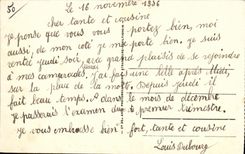 50
Le 16 novembre 1936
cher tante et cousine
Je pense que vous vous portez bien, moi
aussi, de mon coté je me porte bien. je suis
rentré jeudi soir, grand plaisir de se rejoindre
à mes camarades. J'ai fait une belle après Midi,
sur la place de la mote. Depuis jeudi il
fait beau temps. dans le mois de décembre
je passerais l'examen du premier trimestre.
je vous embrasse bien fort, tante et cousine
Louis Dubourg